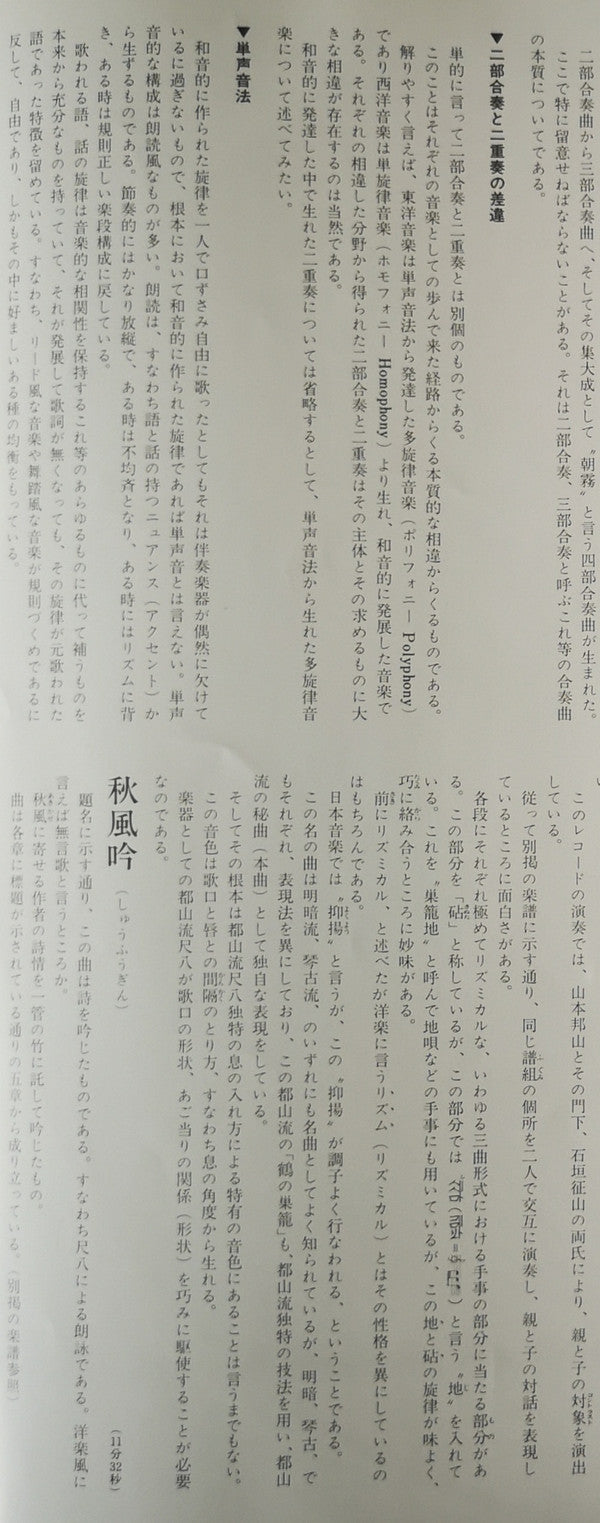 二部合奏曲から三部合奏曲へ、そしてその集大成として〝朝霧〟と言う四部合奏曲が生まれた。
ここで特に留意せねばならないことがある。それは二部合奏、三部合奏と呼ぶこれ等の合奏曲
の本質についてである。
▼二部合奏と二重奏の差違
単的に言って二部合奏と二重奏とは別個のものである。
このことはそれぞれの音楽としての歩んで来た経路からくる本質的な相違からくるものである。
解りやすく言えば、東洋音楽は単声音法から発達した多旋律音楽（ポリフォニー Polyphony）
であり西洋音楽は単旋律音楽（ホモフォニー Homophony）より生れ、和音的に発展した音楽で
ある。それぞれの相違した分野から得られた二部合奏と二重奏はその主体とその求めるものに大
きな相違が存在するのは当然である。
和音的に発達した中で生れた二重奏については省略するとして、単声音法から生れた多旋律音
楽について述べてみたい。
▼単声音法
和音的に作られた旋律を一人で口ずさみ自由に歌ったとしてもそれは伴奏楽器が偶然に欠けて
いるに過ぎないもので、根本において和音的に作られた旋律であれば単声音とは言えない。単声
音的な構成は朗読風なものが多い。朗読は、すなわち語と話の持つニュアンス（アクセント）か
ら生ずるものである。節奏的にはかなり放縦で、ある時は不均斉となり、ある時にはリズムに背
き、ある時は規則正しい楽段構成に戻している。
歌われる語、話の旋律は音楽的な相関性を保持するこれ等のあらゆるものに代って補うものを
本来から充分なものを持っていて、それが発展して歌詞が無くなっても、その旋律が元歌われた
語であった特徴を留めている。すなわち、リード風な音楽や舞踏風な音楽が規則づくめであるに
反して、自由であり、しかもその中に好ましいある種の均衡をもっている。
このレコードの演奏では、山本邦山とその門下、石垣征山の両氏により、親と子の対象を演出
している。
従って別掲の楽譜に示す通り、同じ譜組の個所を二人で交互に演奏し、親と子の対話を表現し
ているところに面白さがある。
各段にそれぞれ極めてリズミカルな、いわゆる三曲形式における手事の部分に当たる部分があ
る。この部分を「砧」と称しているが、この部分では と言う〝地〟を入れて
いる。これを〝巣籠地〟と呼んで地唄などの手事にも用いているが、この地と砧の旋律が味よく、
巧に絡み合うところに妙味がある。
前にリズミカル、と述べたが洋楽に言うリズム（リズミカル）とはその性格を異にしているの
はもちろんである。
日本音楽では〝抑揚〟と言うが、この〝抑揚〟が調子よく行なわれる、ということである。
この名の曲は明暗流、琴古流、のいずれにも名曲としてよく知られているが、明暗、琴古、で
もそれぞれ、表現法を異にしており、この都山流の「鶴の巣籠」も、都山流独特の技法を用い、都山
流の秘曲（本曲）として独自な表現をしている。
そしてその根本は都山流尺八独特の息の入れ方による特有の音色にあることは言うまでもない。
この音色は歌口と唇との間隔のとり方、すなわち息の角度から生れる。
楽器としての都山流尺八が歌口の形状、あご当りの関係（形状）を巧みに駆使することが必要
なのである。
秋風吟（しゅうふうぎん）（11分32秒）
題名に示す通り、この曲は詩を吟じたものである。すなわち尺八による朗詠である。洋楽風に
言えば無言歌と言うところか。
秋風に寄せる作者の詩情を一管の竹に託して吟じたもの。
曲は各章に標題が示されている通りの五章から成り立っている。（別掲の楽譜参照）